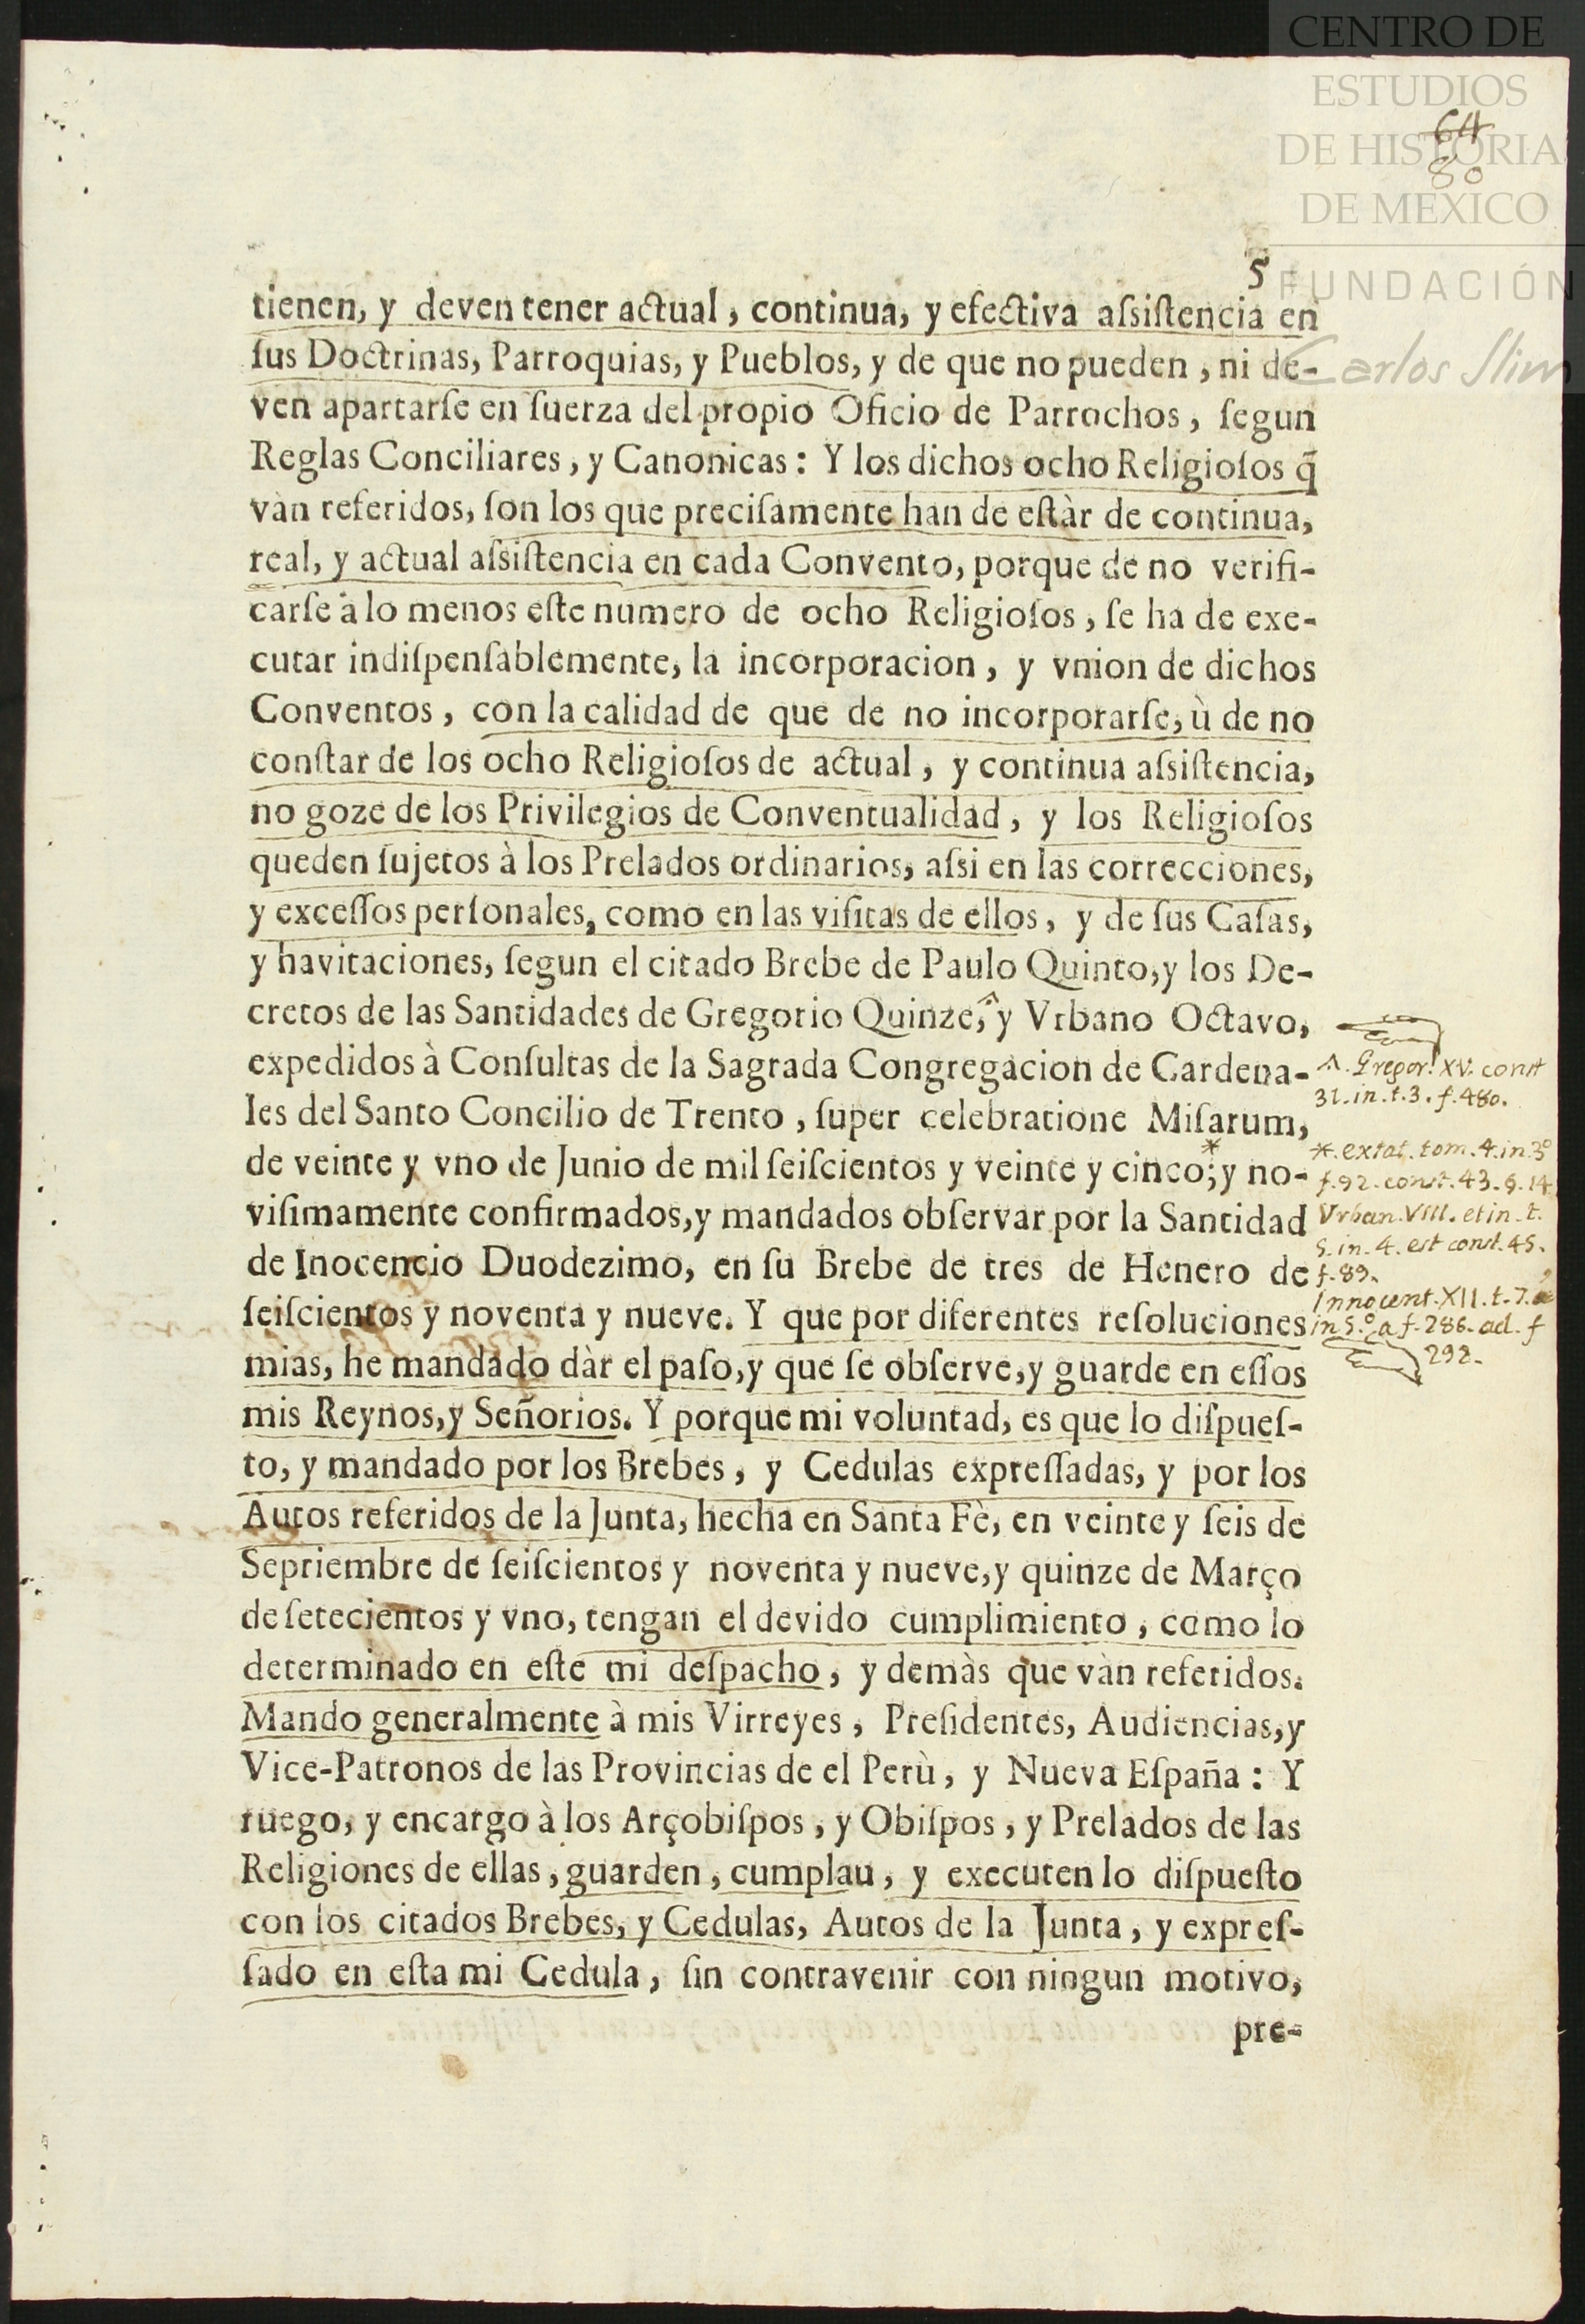 CENTRO DE
ESTUDIOS
DE HISTORIA
DE MEXICO
FUNDACIÓN
Carlos Slim
64
80
5
tienen, y deven tener actual, continua, y efectiva aſsiſtencia en
ſus Doctrinas, Parroquias, y Pueblos, y de que no pueden, ni de-
ven apartarſe en fuerza del propio Oficio de Parrochos, ſegun
Reglas Conciliares, y Canonicas: Y los dichos ocho Religioſos q̃
vàn referidos, ſon los que preciſamente han de eſtàr de continua,
real, y actual aſsiſtencia en cada Convento, porque de no verifi-
carſe à lo menos eſte numero de ocho Religioſos, ſe ha de exe-
cutar indiſpenſablemente, la incorporacion, y vnion de dichos
Conventos, con la calidad de que de no incorporarſe, ù de no
conſtar de los ocho Religioſos de actual, y continua aſsiſtencia,
no goze de los Privilegios de Conventualidad, y los Religioſos
queden ſujetos à los Prelados ordinarios, aſsi en las correcciones,
y exceſſos perſonales, como en las viſitas de ellos, y de ſus Caſas,
y havitaciones, ſegun el citado Brebe de Paulo Quinto, y los De-
cretos de las Santidades de Gregorio Quinze,^ y Vrbano Octavo,
expedidos à Conſultas de la Sagrada Congregacion de Cardena-
les del Santo Concilio de Trento, ſuper celebratione Miſarum,
de veinte y vno de Junio de mil ſeiſcientos y veinte y cinco;* y no-
viſimamente confirmados, y mandados obſervar por la Santidad
de Inocencio Duodezimo, en ſu Brebe de tres de Henero de
ſeiſcientos y noventa y nueve. Y que por diferentes reſoluciones
mias, he mandado dàr el paſo, y que ſe obſerve, y guarde en eſſos
mis Reynos, y Señorios. Y porque mi voluntad, es que lo diſpueſ-
to, y mandado por los Brebes, y Cedulas expreſſadas, y por los
Autos referidos de la Junta, hecha en Santa Fè, en veinte y ſeis de
Septiembre de ſeiſcientos y noventa y nueve, y quinze de Março
de ſetecientos y vno, tengan el devido cumplimiento, como lo
determinado en eſte mi deſpacho, y demàs que vàn referidos.
Mando generalmente à mis Virreyes, Preſidentes, Audiencias, y
Vice-Patronos de las Provincias de el Perù, y Nueva Eſpaña: Y
ruego, y encargo à los Arçobiſpos, y Obiſpos, y Prelados de las
Religiones de ellas, guarden, cumplau, y executen lo diſpueſto
con los citados Brebes, y Cedulas, Autos de la Junta, y expreſ-
ſado en eſta mi Cedula, ſin contravenir con ningun motivo,
pre-
^. Gregor. XV. const
31. in. t. 3. f. 480.
*. extat. tom. 4. in. 3º
f. 92. const. 43. §. 14
Vrban. VIII. et in. t.
5. in. 4. est const. 45.
f. 89.
Innocent. XII. t. 7.
in 5.º a f. 286. ad. f
292.